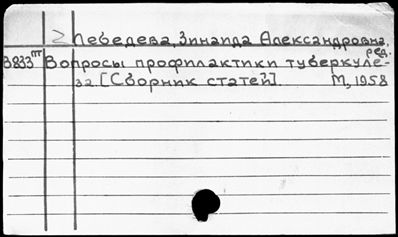 2 Лебедева, Зинаида Александровна,
ред.
3833пт Вопросы профилактики туберкуле-
за [Сборник статей]. М, 1958